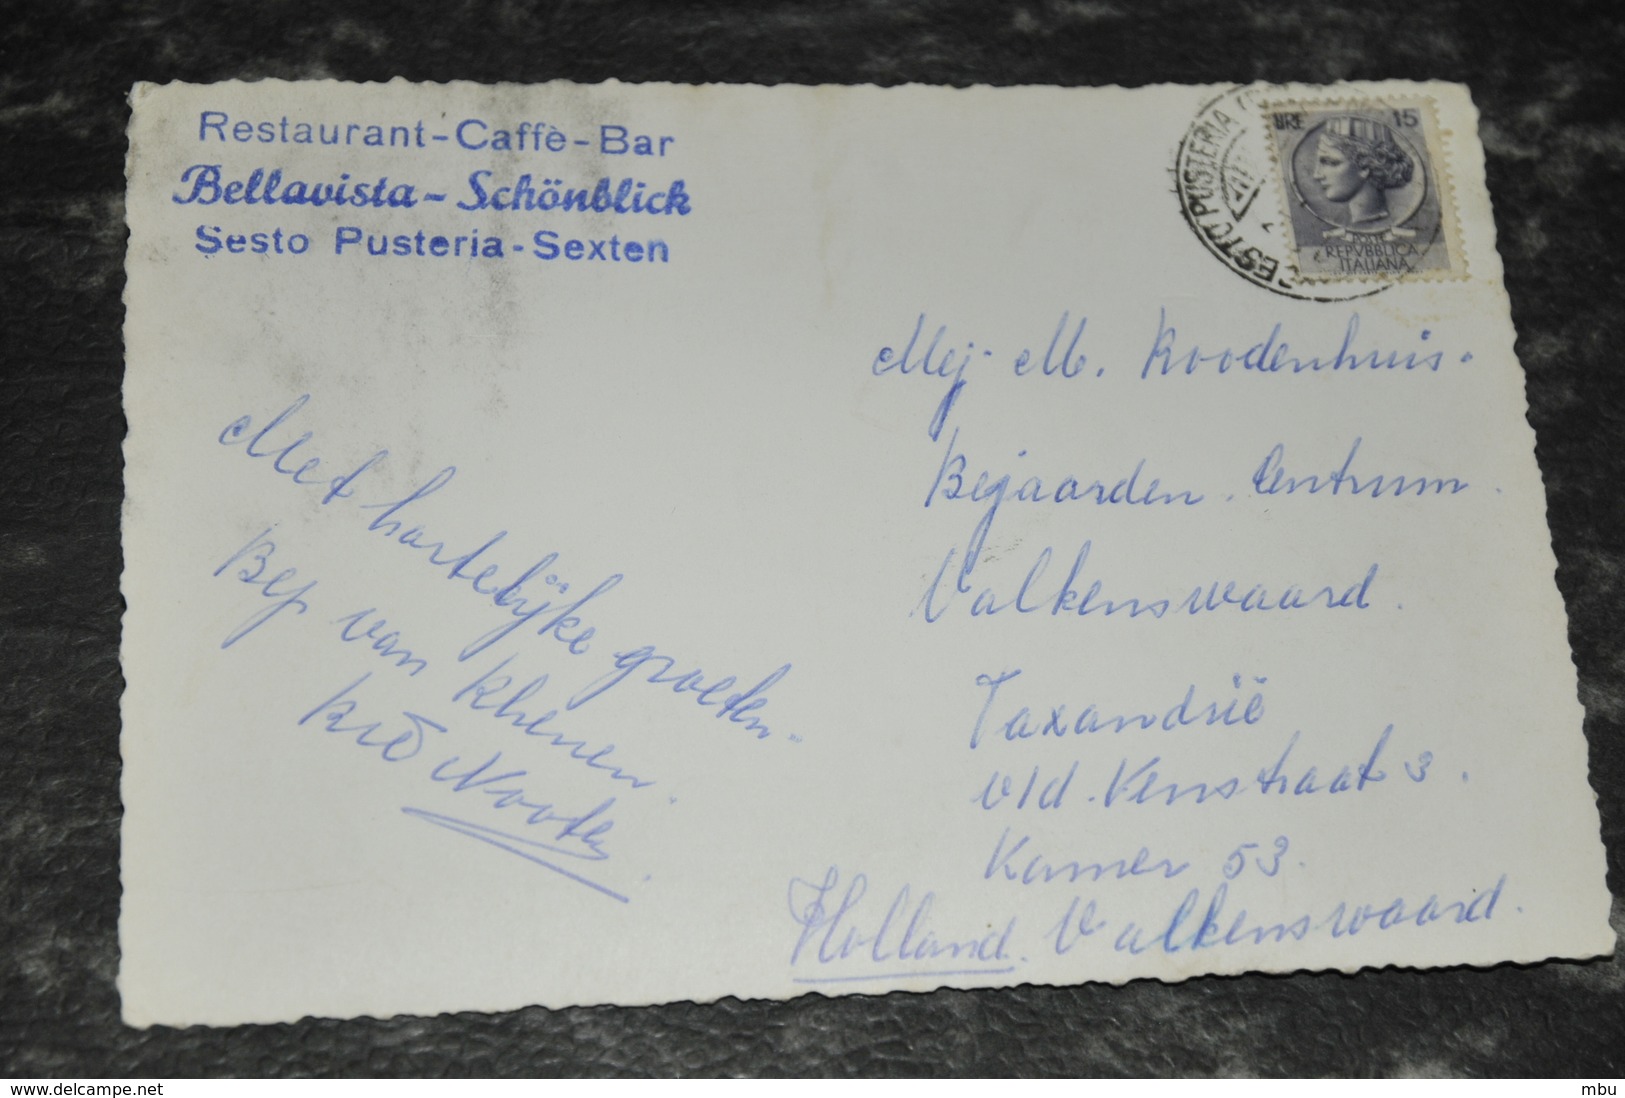 Restaurant-Caffè-Bar
Bellavista-Schönblick
Sesto Pusteria-Sexten
LIRE 15
REPVBBLICA
ITALIANA
SESTO PUSTERIA
Mej. M. Roodenhuis.
Bejaarden Centrum.
Valkenswaard.
Taxandrië
v/d. Venstraat 3.
Kamer 53.
Holland. Valkenswaard.
Met hartelijke groeten.
Bep van Rhenen.
Nooten
delcampe.net
mbu